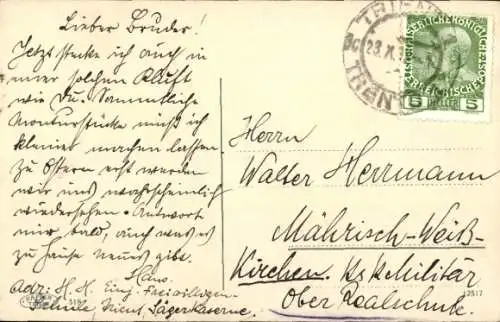 Lieber Bruder!
Jetzt stecke ich auch in
einer solchen Kluft
wie Du. Sämmtliche
Monturstücke muß ich
kleiner machen lassen.
Zu Ostern erst werden
wir uns wahrscheinlich
wiedersehen. Antwort
mir bald, auch was es
zu Hause neues gibt.
Hans
Adr: H. H. Einj. Freiwilligen-
Schule, Trient, Jägerkaserne.
TRIENT
8c 23 X
TRENTO
KAISERLICHE KÖNIGLICHE
ÖSTERREICHISCHE
5 HELLER 5
Herrn
Walter Herrmann
Mährisch-Weiß-
Kirchen. K. k. Militär
Ober Realschule.
12517